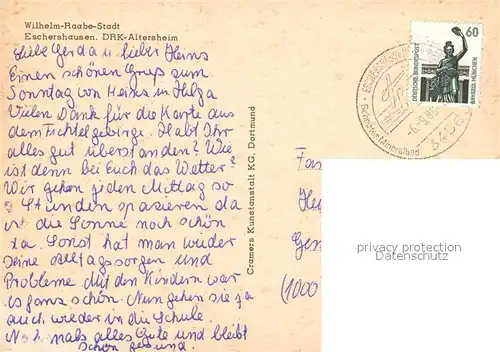 Wilhelm-Raabe-Stadt
Eschershausen. DRK-Altersheim
Liebe Gerda u. lieber Heins
Einen schönen Gruß zum
Sonntag von Heins u Helga
Vielen Dank für die Karte aus
dem Fichtelgebirge. Habt Ihr
alles gut überstanden? Wie
ist denn bei Euch das Wetter?
Wir gehen jeden Mittag so
2 Stunden spazieren da
ist die Sonne noch schön
da. Sonst hat man wieder
seine Alltagssorgen und
Probleme. Mit den Kindern war
es ganz schön. Nun gehen sie ja
auch wieder in die Schule.
Nochmals alles Gute und bleibt
schön gesund.
Cramers Kunstanstalt KG, Dortmund
60
DEUTSCHE BUNDESPOST
BAVARIA MÜNCHEN
Fam
He
Ges
(1000
privacy protection
Datenschutz